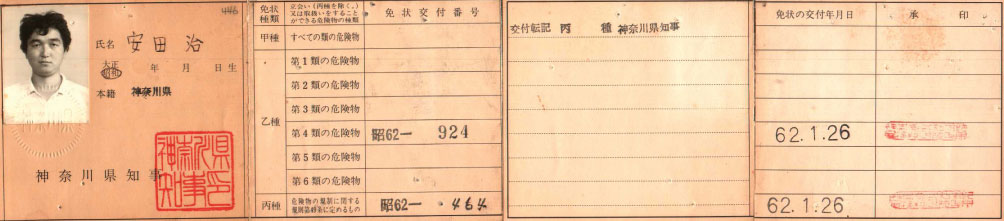 446
氏名 安田 治
大正
昭和
年 月 日生
本籍 神奈川県
神奈川県知事
神奈川県知事印
免状種類
立会い(丙種を除く。)
又は取扱いをすること
ができる危険物の種類
免状交付番号
甲種 すべての類の危険物
乙種
第1類の危険物
第2類の危険物
第3類の危険物
第4類の危険物 昭62一 924
第5類の危険物
第6類の危険物
丙種
危険物の規制に関する
規則第49条に定めるもの
昭62一 464
交付転記 丙 種 神奈川県知事
免状の交付年月日 承 印
62.1.26
62.1.26